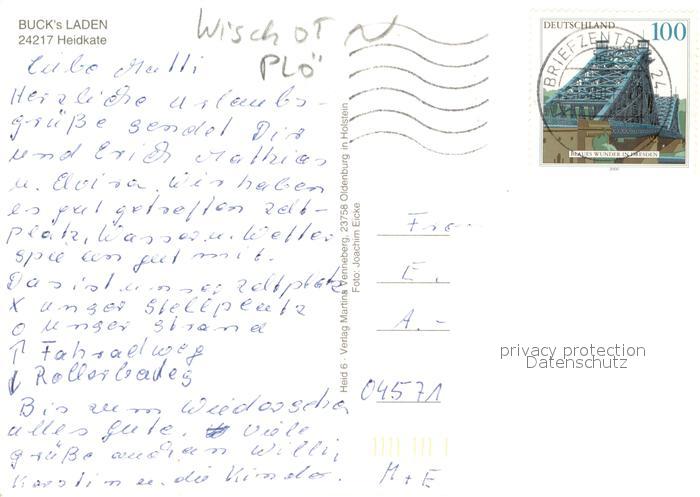 BUCK's LADEN
24217 Heidkate
Wisch OT
PLÖ
Liebe Mutti
Herzliche Urlaubs-
grüße sendet Dir
und Erich Mathias
u. wir haben
es gut getroffen Zelt-
platz, Wasser u. Wetter
spielen gut mit.
Das ist unser Zeltplatz
X unser Stellplatz
O unser Strand
↑ Fahradweg
↓
Bis zum Wiedersehn
alles gute. viele
grüße auch an Willi,
Kerstin u. die Kinder.
M + E
Heid 6 · Verlag Martina Venneberg, 23758 Oldenburg in Holstein
Foto: Joachim Eicke
DEUTSCHLAND 100
BRIEFZENTRUM 24
BLAUES WUNDER IN DRESDEN
2000
Frau
E.
A.-
04571
privacy protection
Datenschutz